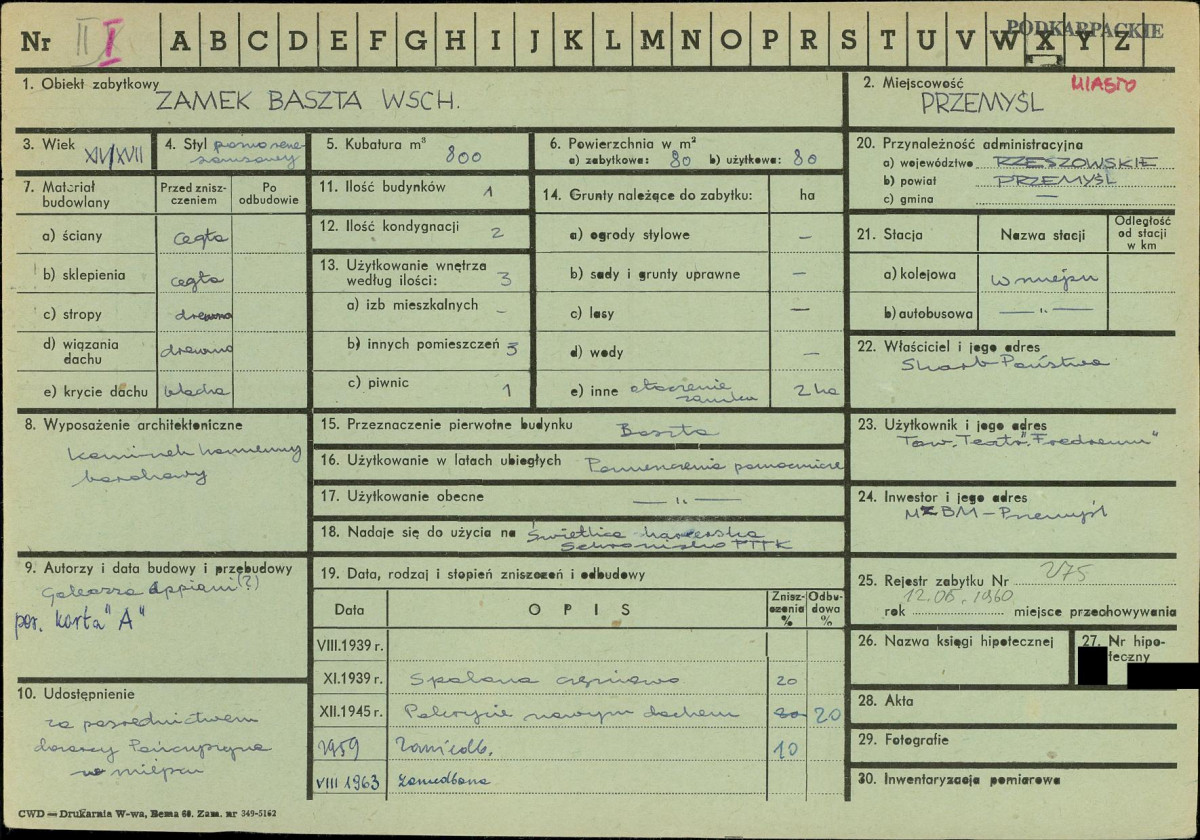 Nr II I A B C D E F G H I J K L M N O P R S T U V W X Y Z
PODKARPACKIE
1. Obiekt zabytkowy ZAMEK BASZTA WSCH.
2. Miejscowość MIASTO
PRZEMYŚL
3. Wiek XVI/XVII
4. Styl późno rene-
sansowy
5. Kubatura m³ 800
6. Powierzchnia w m²
a) zabytkowa: 80 b) użytkowa: 80
7. Materiał budowlany
Przed znisz-
czeniem
Po
odbudowie
a) ściany cegła
b) sklepienia cegła
c) stropy drewno
d) wiązania
dachu drewno
e) krycie dachu blacha
8. Wyposażenie architektoniczne
kominek kamienny
barokowy
9. Autorzy i data budowy i przebudowy
Galeazzo Appiani (?)
por. karta "A"
10. Udostępnienie
za pośrednictwem
dozorcy
w miejscu
11. Ilość budynków 1
12. Ilość kondygnacji 2
13. Użytkowanie wnętrza
według ilości: 3
a) izb mieszkalnych -
b) innych pomieszczeń 3
c) piwnic 1
14. Grunty należące do zabytku: ha
a) ogrody stylowe —
b) sady i grunty uprawne —
c) lasy —
d) wody —
e) inne otoczenie
zamku 2 ha
15. Przeznaczenie pierwotne budynku Baszta
16. Użytkowanie w latach ubiegłych Pomieszczenia pomocnicze
17. Użytkowanie obecne — " —
18. Nadaje się do użycia na Świetlica harcerska
Schronisko PTTK
19. Data, rodzaj i stopień zniszczeń i odbudowy
Data O P I S Znisz-
czenia
%
Odbu-
dowa
%
VIII.1939 r.
XI.1939 r. Spalona częściowo 20
XII.1945 r. Pokrycie nowym dachem 20
1959 Zaniedb. 10
VIII 1963 zaniedbana
20. Przynależność administracyjna
a) województwo RZESZOWSKIE
b) powiat PRZEMYŚL
c) gmina —
21. Stacja Nazwa stacji Odległość
od stacji
w km
a) kolejowa w miejscu
b) autobusowa — " —
22. Właściciel i jego adres
Skarb Państwa
23. Użytkownik i jego adres
Tow. Teatr. "Fredreum"
24. Inwestor i jego adres
MZBM - Przemyśl
25. Rejestr zabytku Nr 275
12.06.1960
rok miejsce przechowywania
26. Nazwa księgi hipotecznej
27. Nr hipo-
teczny
28. Akta
29. Fotografie
30. Inwentaryzacja pomiarowa
CWD — Drukarnia W-wa, Bema 60. Zam. nr 349-5162